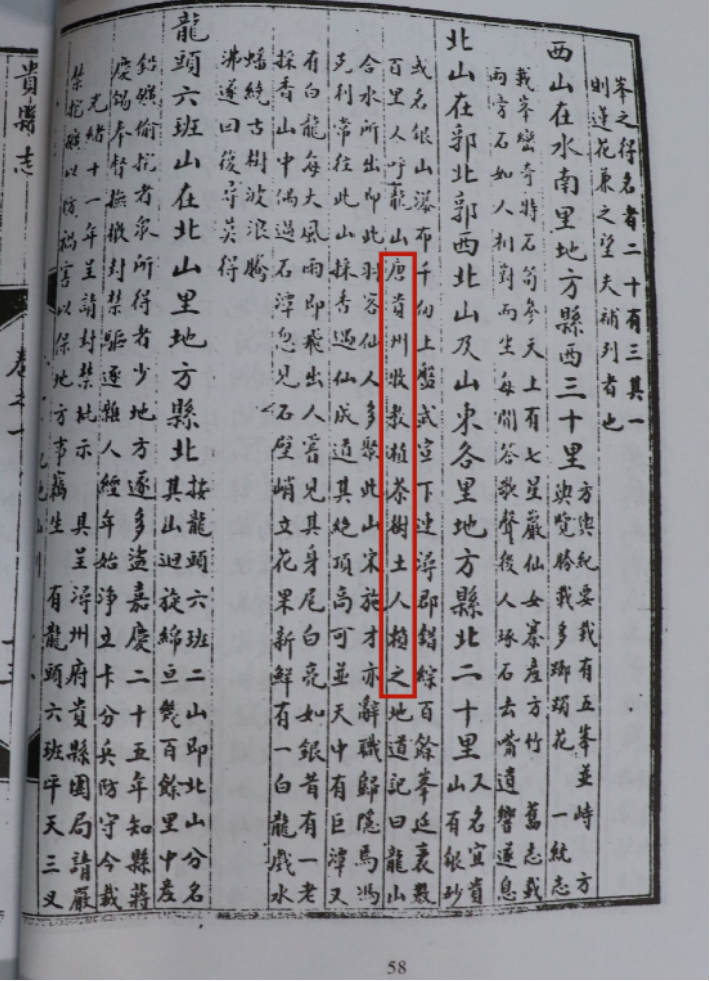 峯之得名者二十有三其一
則蓮花兼之望夫補列者也
西山在水南里地方縣西三十里
方輿紀要載有五峯並峙 方
輿覽勝載多躑躅花 一統志
載峯巒奇特石筍參天上有七星巖仙女寨產方竹 舊志載
兩旁石如人相對而坐每聞答歌聲後人琢石去嘴遺響遂息
北山在郭北郭西北山及山東各里地方縣北二十里
又名宜貴
山有銀砂
或名銀山瀑布千仞上盤武宣下連潯郡錯綜百餘峯延袤數
百里人呼龍山唐貴州牧教植茶樹土人賴之地道記曰龍山
合水所出即此羽客仙人多聚此山宋施才亦辭職歸隱馬馮
克利常往此山採香遇仙成道其絶頂高可並天中有巨潭又
有白龍每大風雨即飛出人嘗見其身尾白亮如銀昔有一老
採香山中偶過石潭忽見石壁峭立花果新鮮有一白龍戲水
蟠繞古樹波浪騰
沸遂回後尋莫得
龍頭六班山在北山里地方縣北
按龍頭六班二山即北山分名
其山迴旋綿亘幾百餘里中產
鉛礦偷挖者衆所得者少地方遂多盜嘉慶二十五年知縣蔣
慶錫奉督撫檄封禁驅逐雜人經年始淨立卡分兵防守今載
光緒十一年呈請封禁批示 具呈潯州府貴縣團局請嚴
禁挖礦以防禍害以保地方事竊生 有龍頭六班平天三叉
貴縣志
卷之一
58